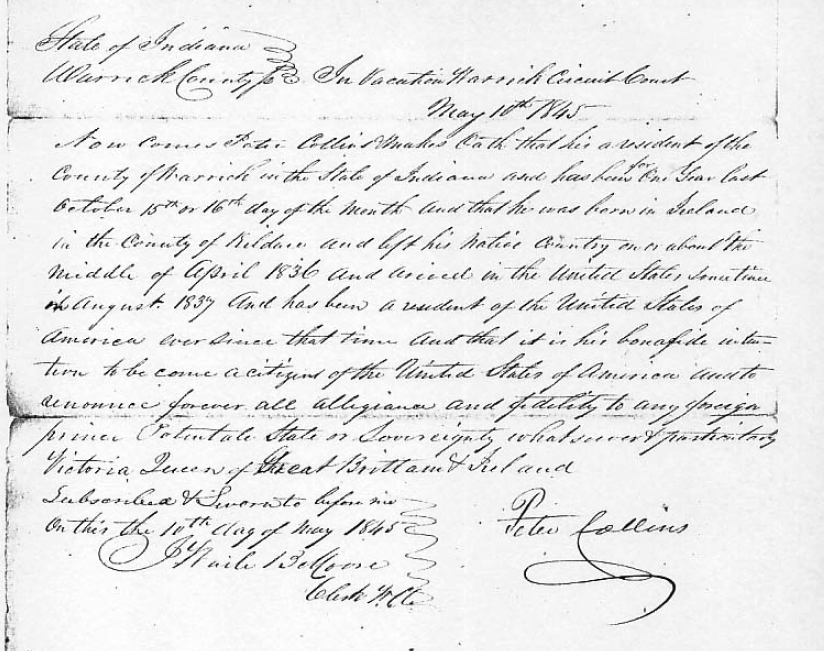 State of Indiana
Warrick County In Vacation Warrick Circuit Court
May 10th 1845
Now comes Peter Collins & makes Oath that his a resident of the
County of Warrick in the State of Indiana and has been for One Year last
October 15th or 16th day of the Month and that he was born in Ireland
in the County of Kildare and left his Native Country on or about the
middle of April 1836 and arived in the United States sometime
in August 1837 And has been a resident of the United States of
America ever since that time and that it is his bonafide inten-
tion to be come a citizen of the United States of America and to
renounce forever all allegiance and fidelity to any foreign
prince Potentate State or Sovereignty whatsoever & particularly
Victoria Queen of Great Brittain & Ireland
Subscribed & Sworn to before me
On this the 10th day of May 1845
Peter Collins
Moore
Clerk